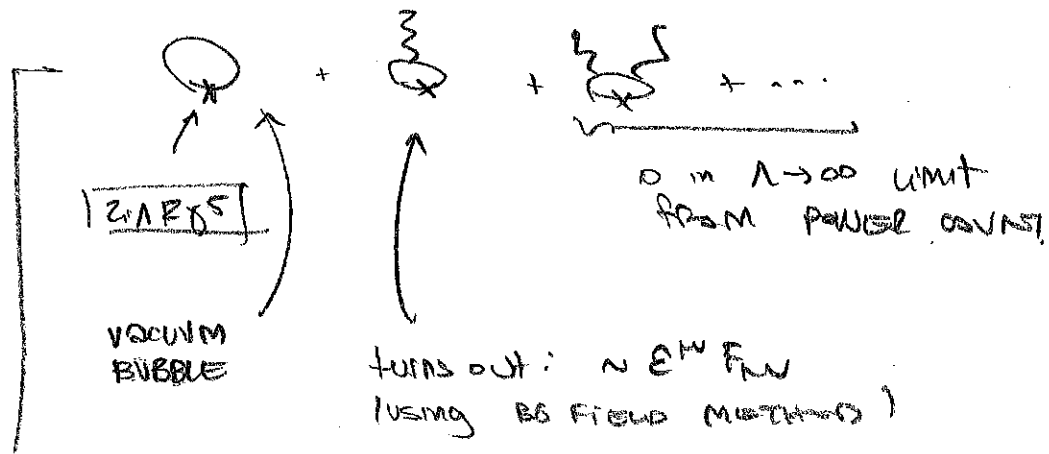 + + + ....
0 in Λ→∞ limit
from power count.
2iΛεγ⁵
vacuum
bubble
turns out: ~ ε^{μν} F_{μν}
(using BG field method)